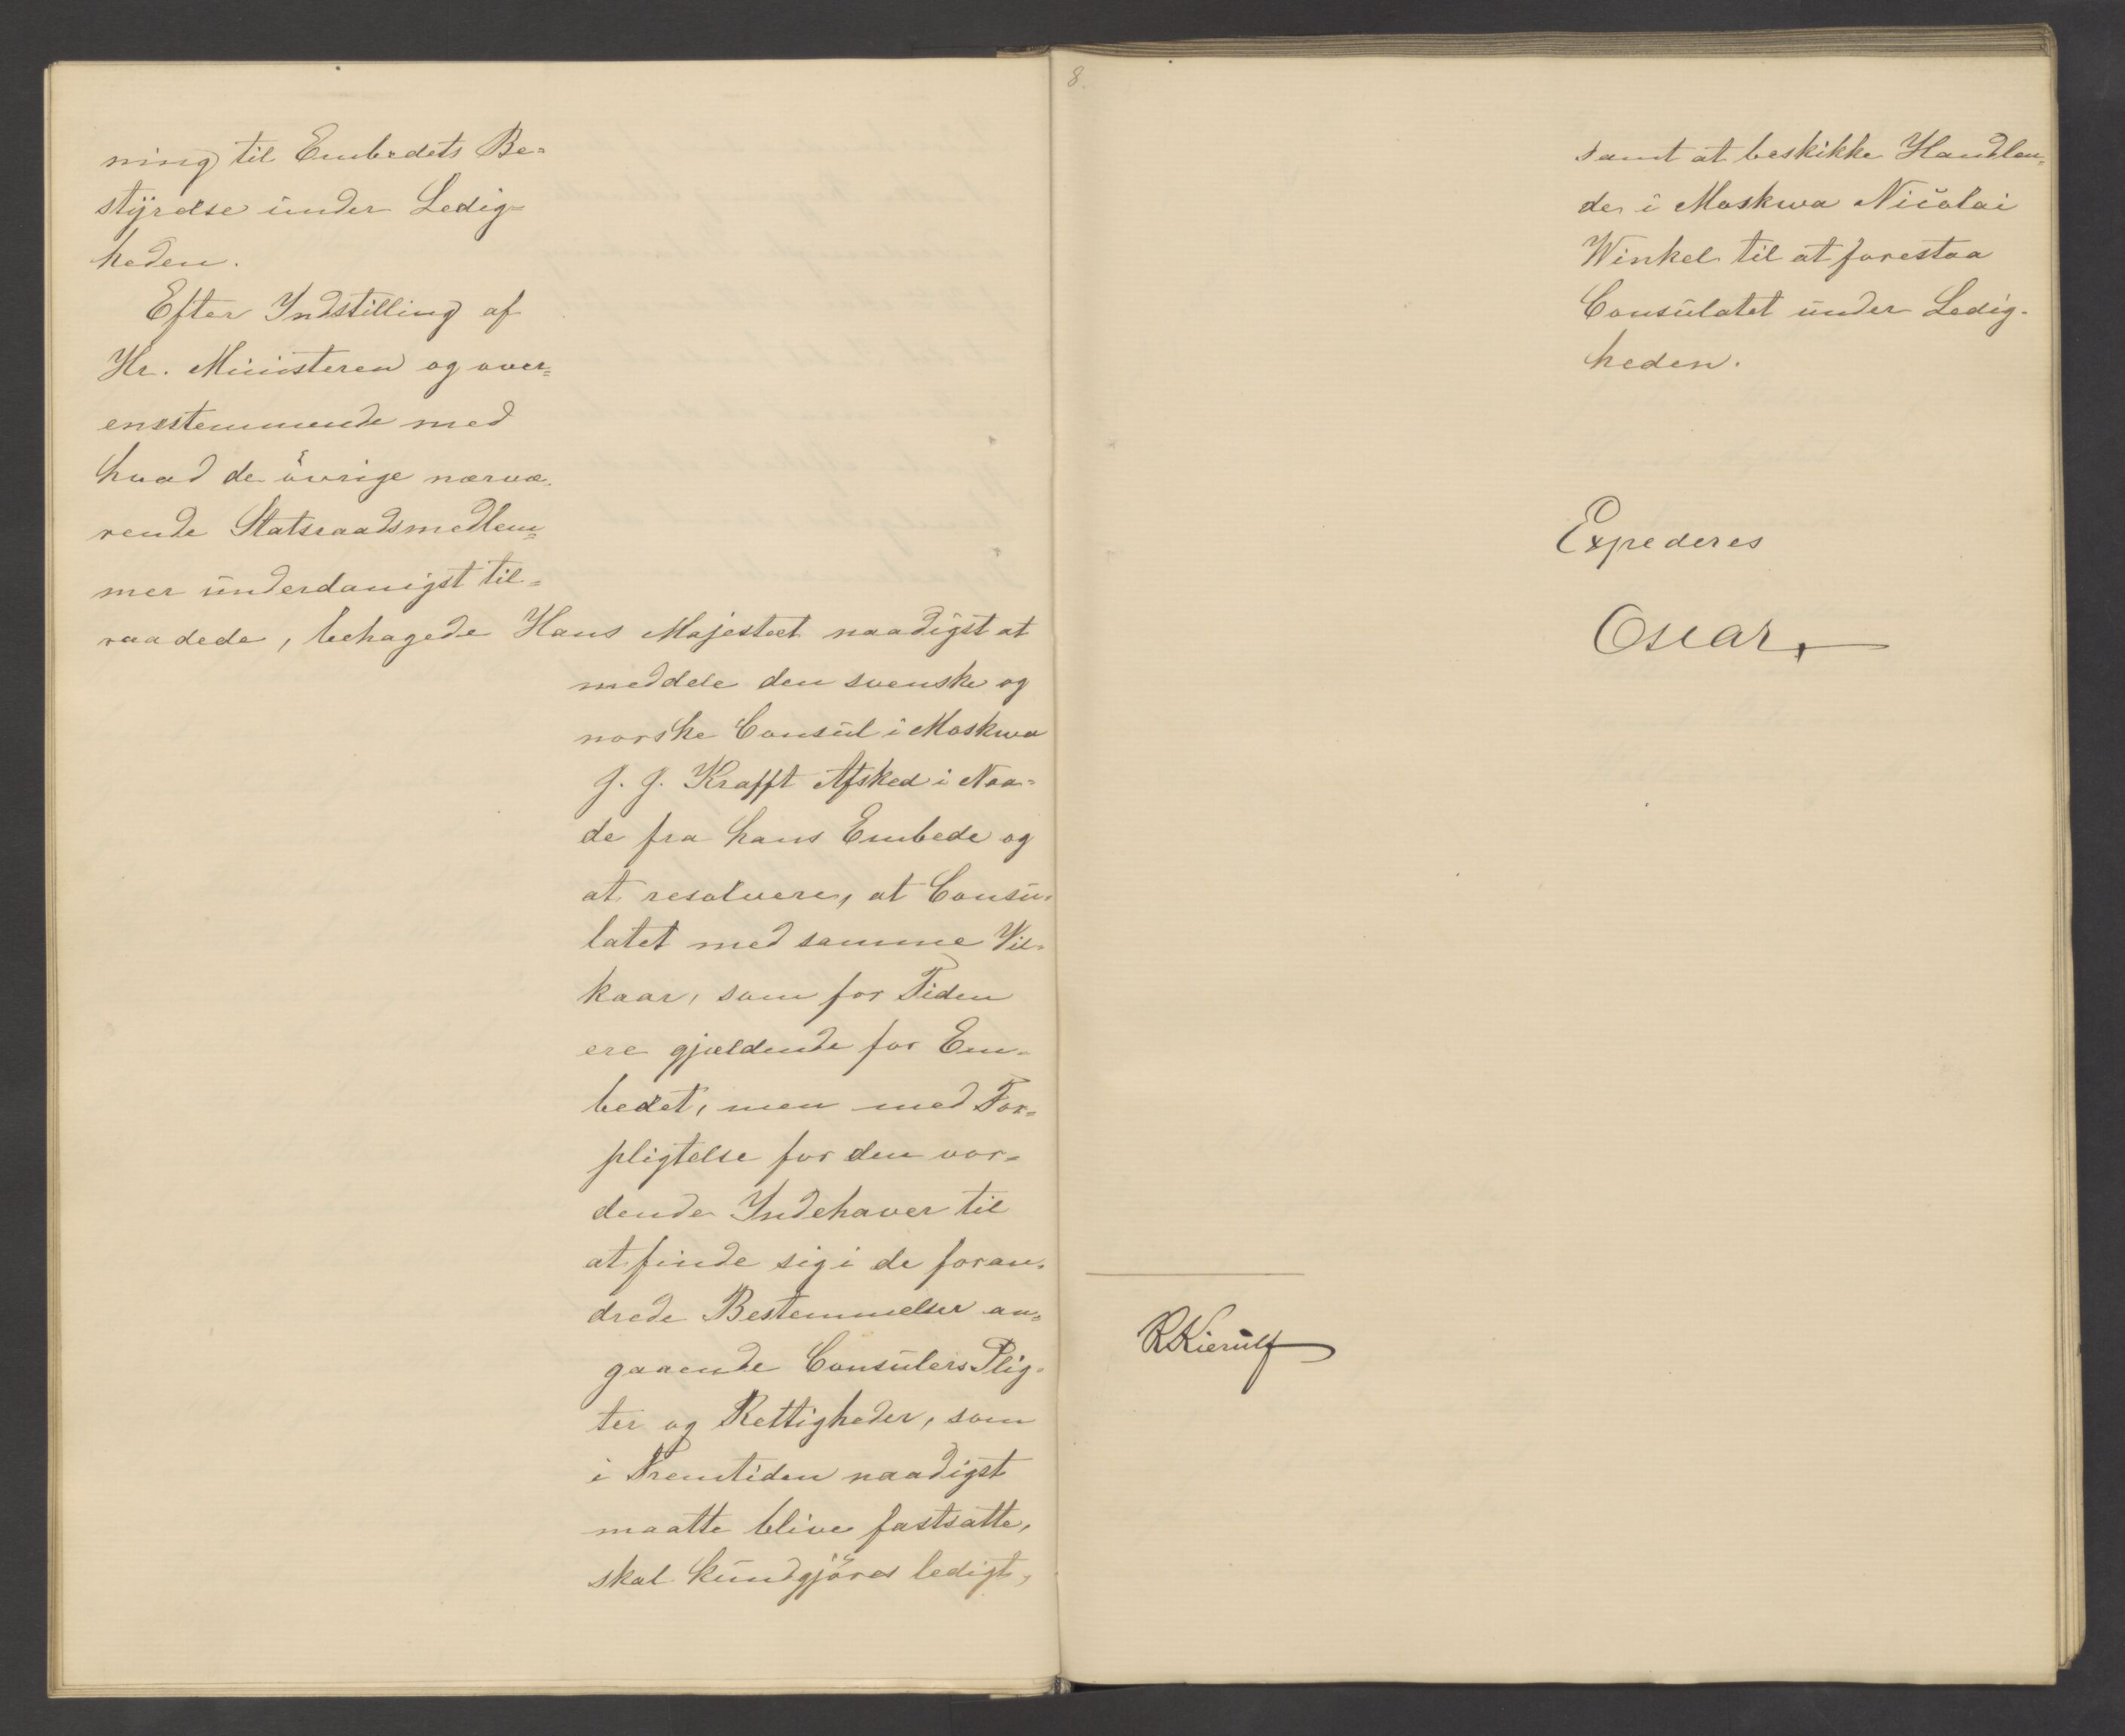 ning til Embedets Be=
styrelse under Ledig=
heden.
Efter Indstilling af
Hr. Ministeren og over=
ensstemmende med
hvad de övrige nærvæ-
rende Statsraadsmedlem=
mer underdanigst til=
raadede, behagede Hans Majestæt naadigst at
meddele den svenske og
norske Consul i Moskwa
J. J. Krafft Afsked i Naa=
de fra hans Embede og
at resolvere, at Consu=
latet med samme Vil=
kaar, som for Tiden
ere gjældende for Em=
bedet, men med For=
pligtelse for den vor=
dende Indehaver til
at finde sig i de foran=
drede Bestemmelser an=
gaaende Consulers Plig=
ter og Rettigheder, som
i Fremtiden naadigst
maatte blive fastsatte,
skal kundgjöres ledigt,
8.
samt at beskikke Handlen=
de i Moskwa Nicolai
Winkel til at forestaa
Consulatet under Ledig-
heden.
Expederes
Oscar.
RKierulf